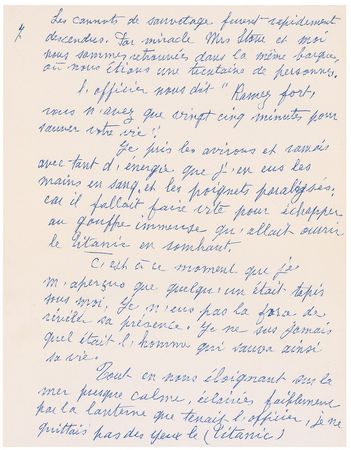 7
Les cannots de sauvetage furent rapidement
descendus. Par miracle Mrs Stone et moi
nous sommes retrouvées dans la même barque,
où nous étions une trentaine de personnes.
L'officier nous dit "Ramez fort,
vous n'avez que vingt cinq minutes pour
sauver votre vie".
Je pris les avirons et ramais
avec tant d'énergie que j'en eus les
mains en sang, et les poignets paralysés.
car il fallait faire vite pour échapper
au gouffre immense qu'allait ouvrir
le Titanic en sombrant.
C'est à ce moment que je
m'aperçus que quelqu'un était tapis
sous moi. Je n'eus pas la force de
révéler sa présence. Je ne sus jamais
quel était l'homme qui sauva ainsi
sa vie.
Tout en nous éloignant sur la
mer presque calme, éclairées faiblement
par la lanterne que tenait l'officier, je ne
quittais pas des yeux le (Titanic)